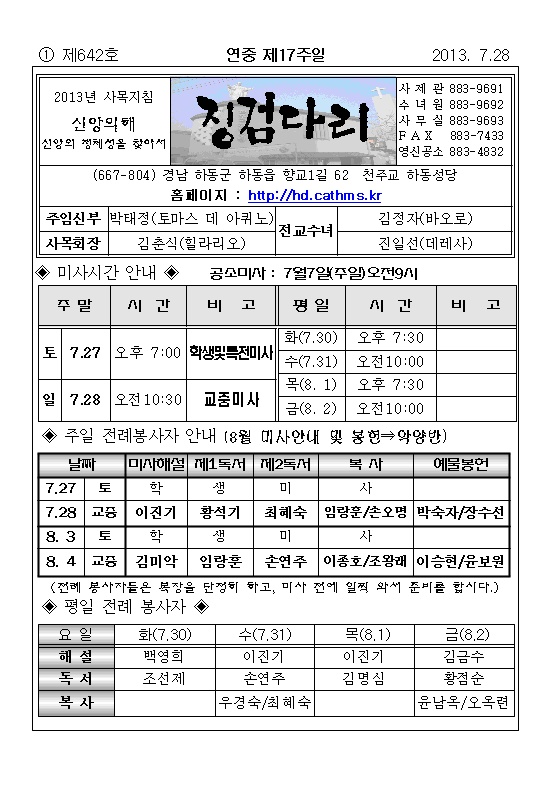 ① 제642호 연중 제17주일 2013. 7.28
2013년 사목지침
신앙의해
신앙의 정체성을 찾아서
징검다리
사 제 관 883-9691
수 녀 원 883-9692
사 무 실 883-9693
F A X 883-7433
영신공소 883-4832
(667-804) 경남 하동군 하동읍 향교1길 62 천주교 하동성당
홈페이지 : http://hd.cathms.kr
주임신부 박태정(토마스 데 아퀴노) 전교수녀 김정자(바오로)
사목회장 김춘식(힐라리오) 진일선(데레사)
◈ 미사시간 안내 ◈ 공소미사 : 7월7일(주일)오전9시
주 말 시 간 비 고 평 일 시 간 비 고
토 7.27 오후 7:00 학생및특전미사 화(7.30) 오후 7:30
수(7.31) 오전10:00
일 7.28 오전10:30 교중미사 목(8. 1) 오후 7:30
금(8. 2) 오전10:00
◈ 주일 전례봉사자 안내 (8월 미사안내 및 봉헌⇒악양반)
날짜 미사해설 제1독서 제2독서 복 사 예물봉헌
7.27 토 학 생 미 사
7.28 교중 이진기 황석기 최혜숙 임랑훈/손오명 박숙자/장수선
8. 3 토 학 생 미 사
8. 4 교중 김미악 임랑훈 손연주 이종호/조왕래 이승현/윤보원
(전례 봉사자들은 복장을 단정히 하고, 미사 전에 일찍 와서 준비를 합시다.)
◈ 평일 전례 봉사자 ◈
요 일 화(7.30) 수(7.31) 목(8.1) 금(8.2)
해 설 백영희 이진기 이진기 김금수
독 서 조선제 손연주 김명심 황점순
복 사 우경숙/최혜숙 윤남옥/오옥련